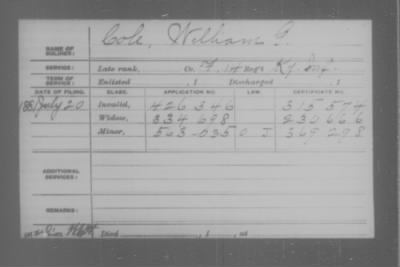 NAME OF SOLDIER: Cole, William
SERVICE: Late rank, Co. 1st Reg't Ky. Inf.
TERM OF SERVICE: Enlisted , 1 Discharged , 1
DATE OF FILING. CLASS. APPLICATION NO. LAW. CERTIFICATE NO.
1881 July 20 Invalid, 426 346 315 574
Widow, 334 698 230 666
Minor, 563 035 O I 369 298
ADDITIONAL SERVICES:
REMARKS:
Died , 1 , at